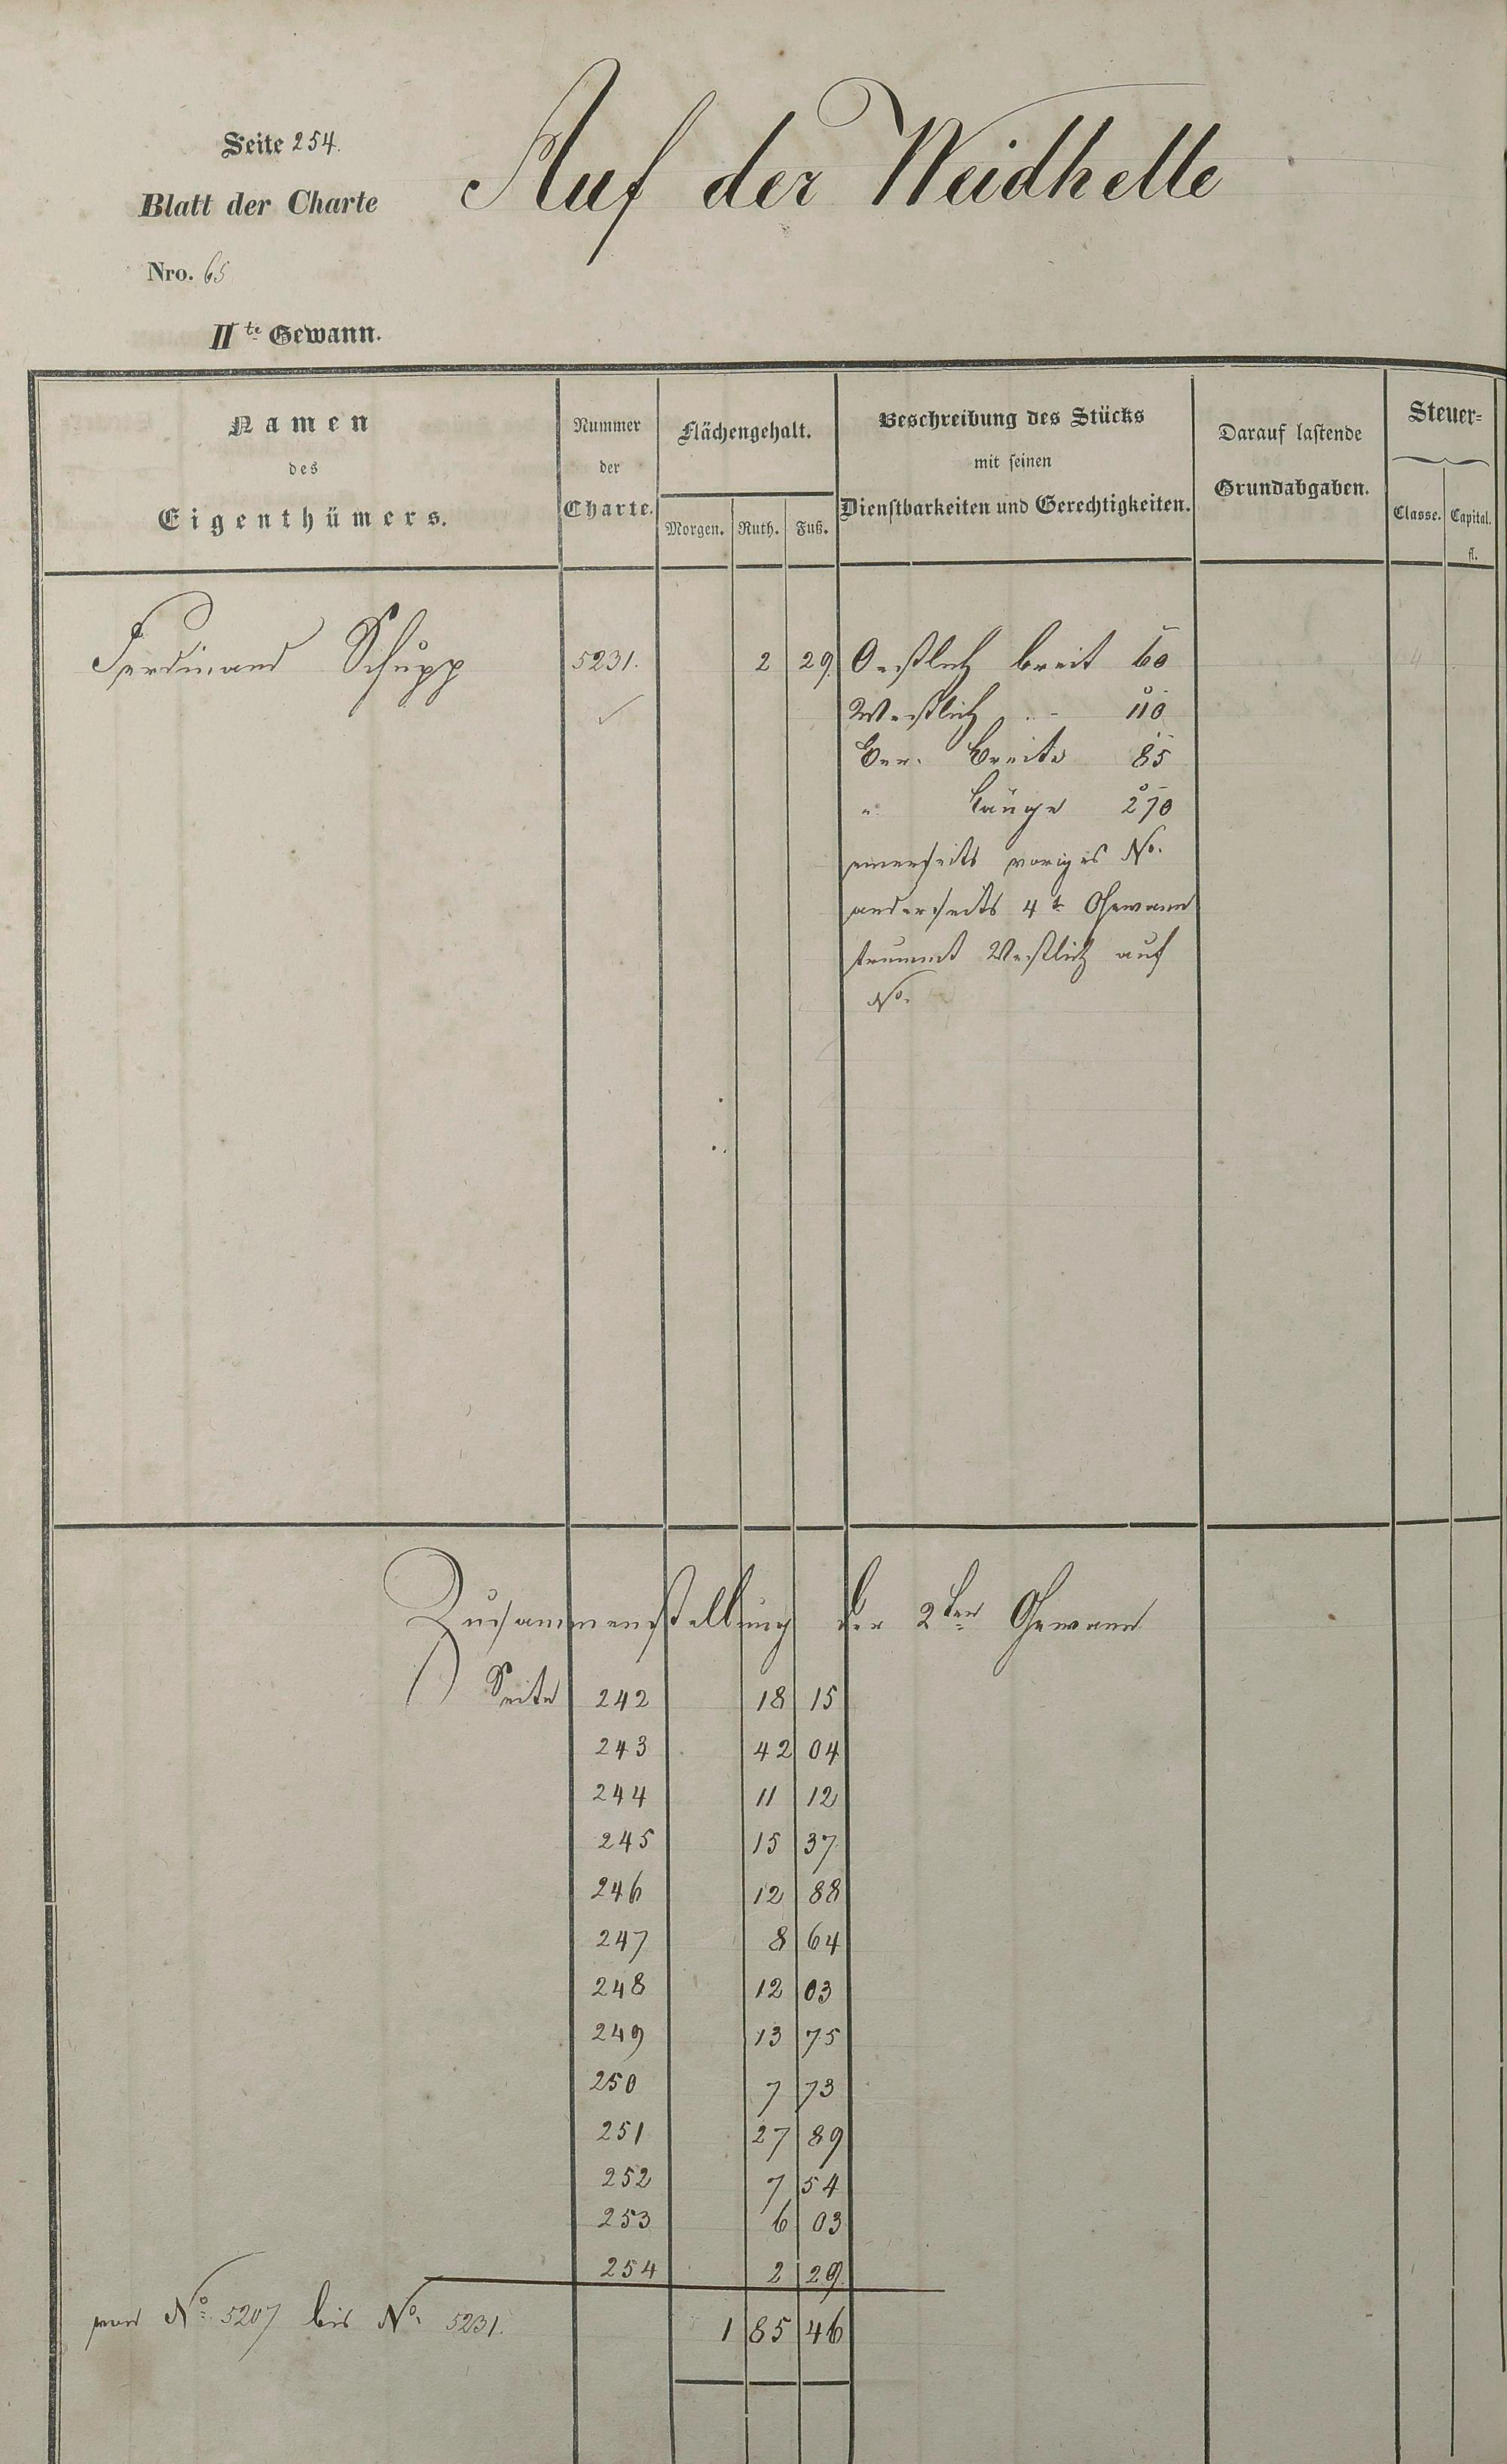 Seite 254.
Auf der Weidhelle
Blatt der Charte
Nro. 65
IIte Gewann.
Namen
des
Eigenthümers.
Nummer
der
Charte.
Flächengehalt.
Morgen. Ruth. Fuß.
Beschreibung des Stücks
mit seinen
Dienstbarkeiten und Gerechtigkeiten.
Darauf lastende
Grundabgaben.
Steuer=
Classe. Capital.
fl.
Ferdinand Schupp 5231. 2 29. Oestlich breit 60 4
Westlich " 110
Ber. Breite 85
" Länge 270
einerseits voriges No.
anderseits 4te Gewann
Westlich auf
No.
Zusammenstellung der 2ten Gewann
Seite 242 18 15
243 42 04
244 11 12
245 15 37
246 12 88
247 8 64
248 12 03
249 13 75
250 7 73
251 27 89
252 7 54
253 6 03
254 2 29.
von No. 5207 bis No. 5231. 1 85 46